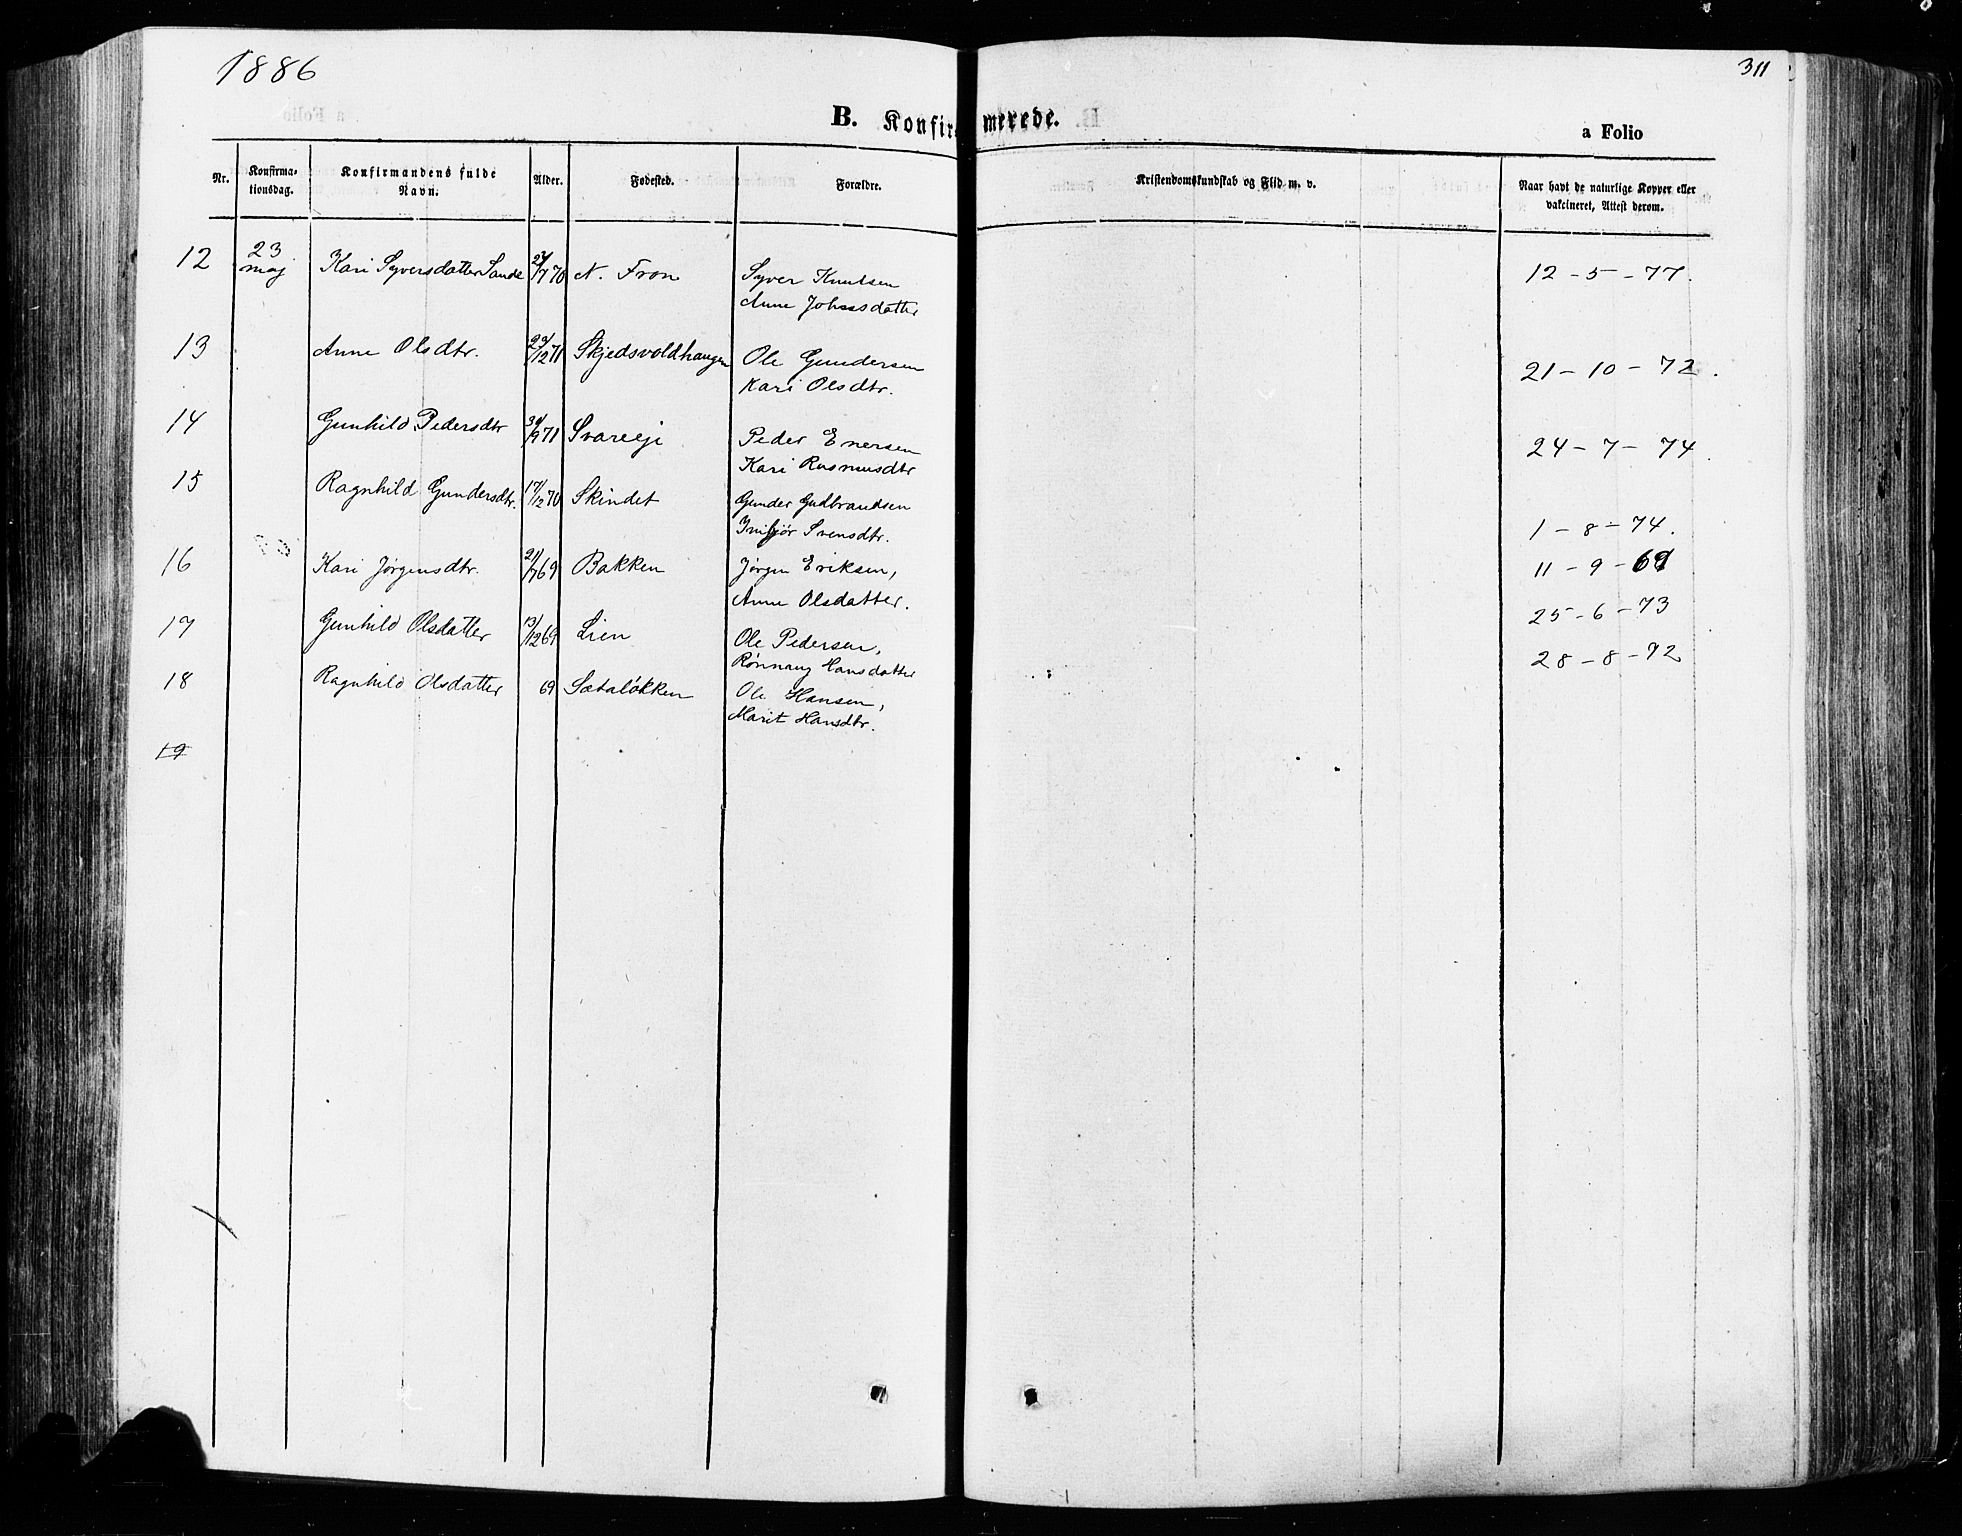 1886
311
B. Konfirmerede.
a Folio
Nr.
Konfirma-
tionsdag.
Konfirmandens fulde
Navn.
Alder.
Fødested.
Forældre.
Kristendomskundskab og Flid m. v.
Naar havt de naturlige Kopper eller
vakcineret, Attest derom.
12 23 maj Kari Syversdatter Sande 27/7 70 N. Fron Syver Knutsen 12-5-77.
Anne
13 Anne Olsdtr. /12 71 Skjedsvoldhaugen Ole Gundersen 21-10-72.
Kari Olsdtr.
14 Gunhild Pedersdtr 30/9 71 Svareeje Peder Enersen 24-7-74.
Kari Rasmusdtr
15 Ragnhild Gundersdtr. 17/12 70 Skindet Gunder Gudbrandsen
Svensdtr. 1-8-74.
16 Kari Jørgensdtr. 21/7 69 Bakken Jørgen Eriksen, 11-9-69
Anne Olsdatter.
17 Gunhild Olsdatter 13/12 69 Lien Ole Pedersen, 25-6-73
Rønnaug Hansdatter
18 Ragnhild Olsdatter 69 Sætaløkken Ole Hansen, 28-8-72
Marit Hansdtr.
19